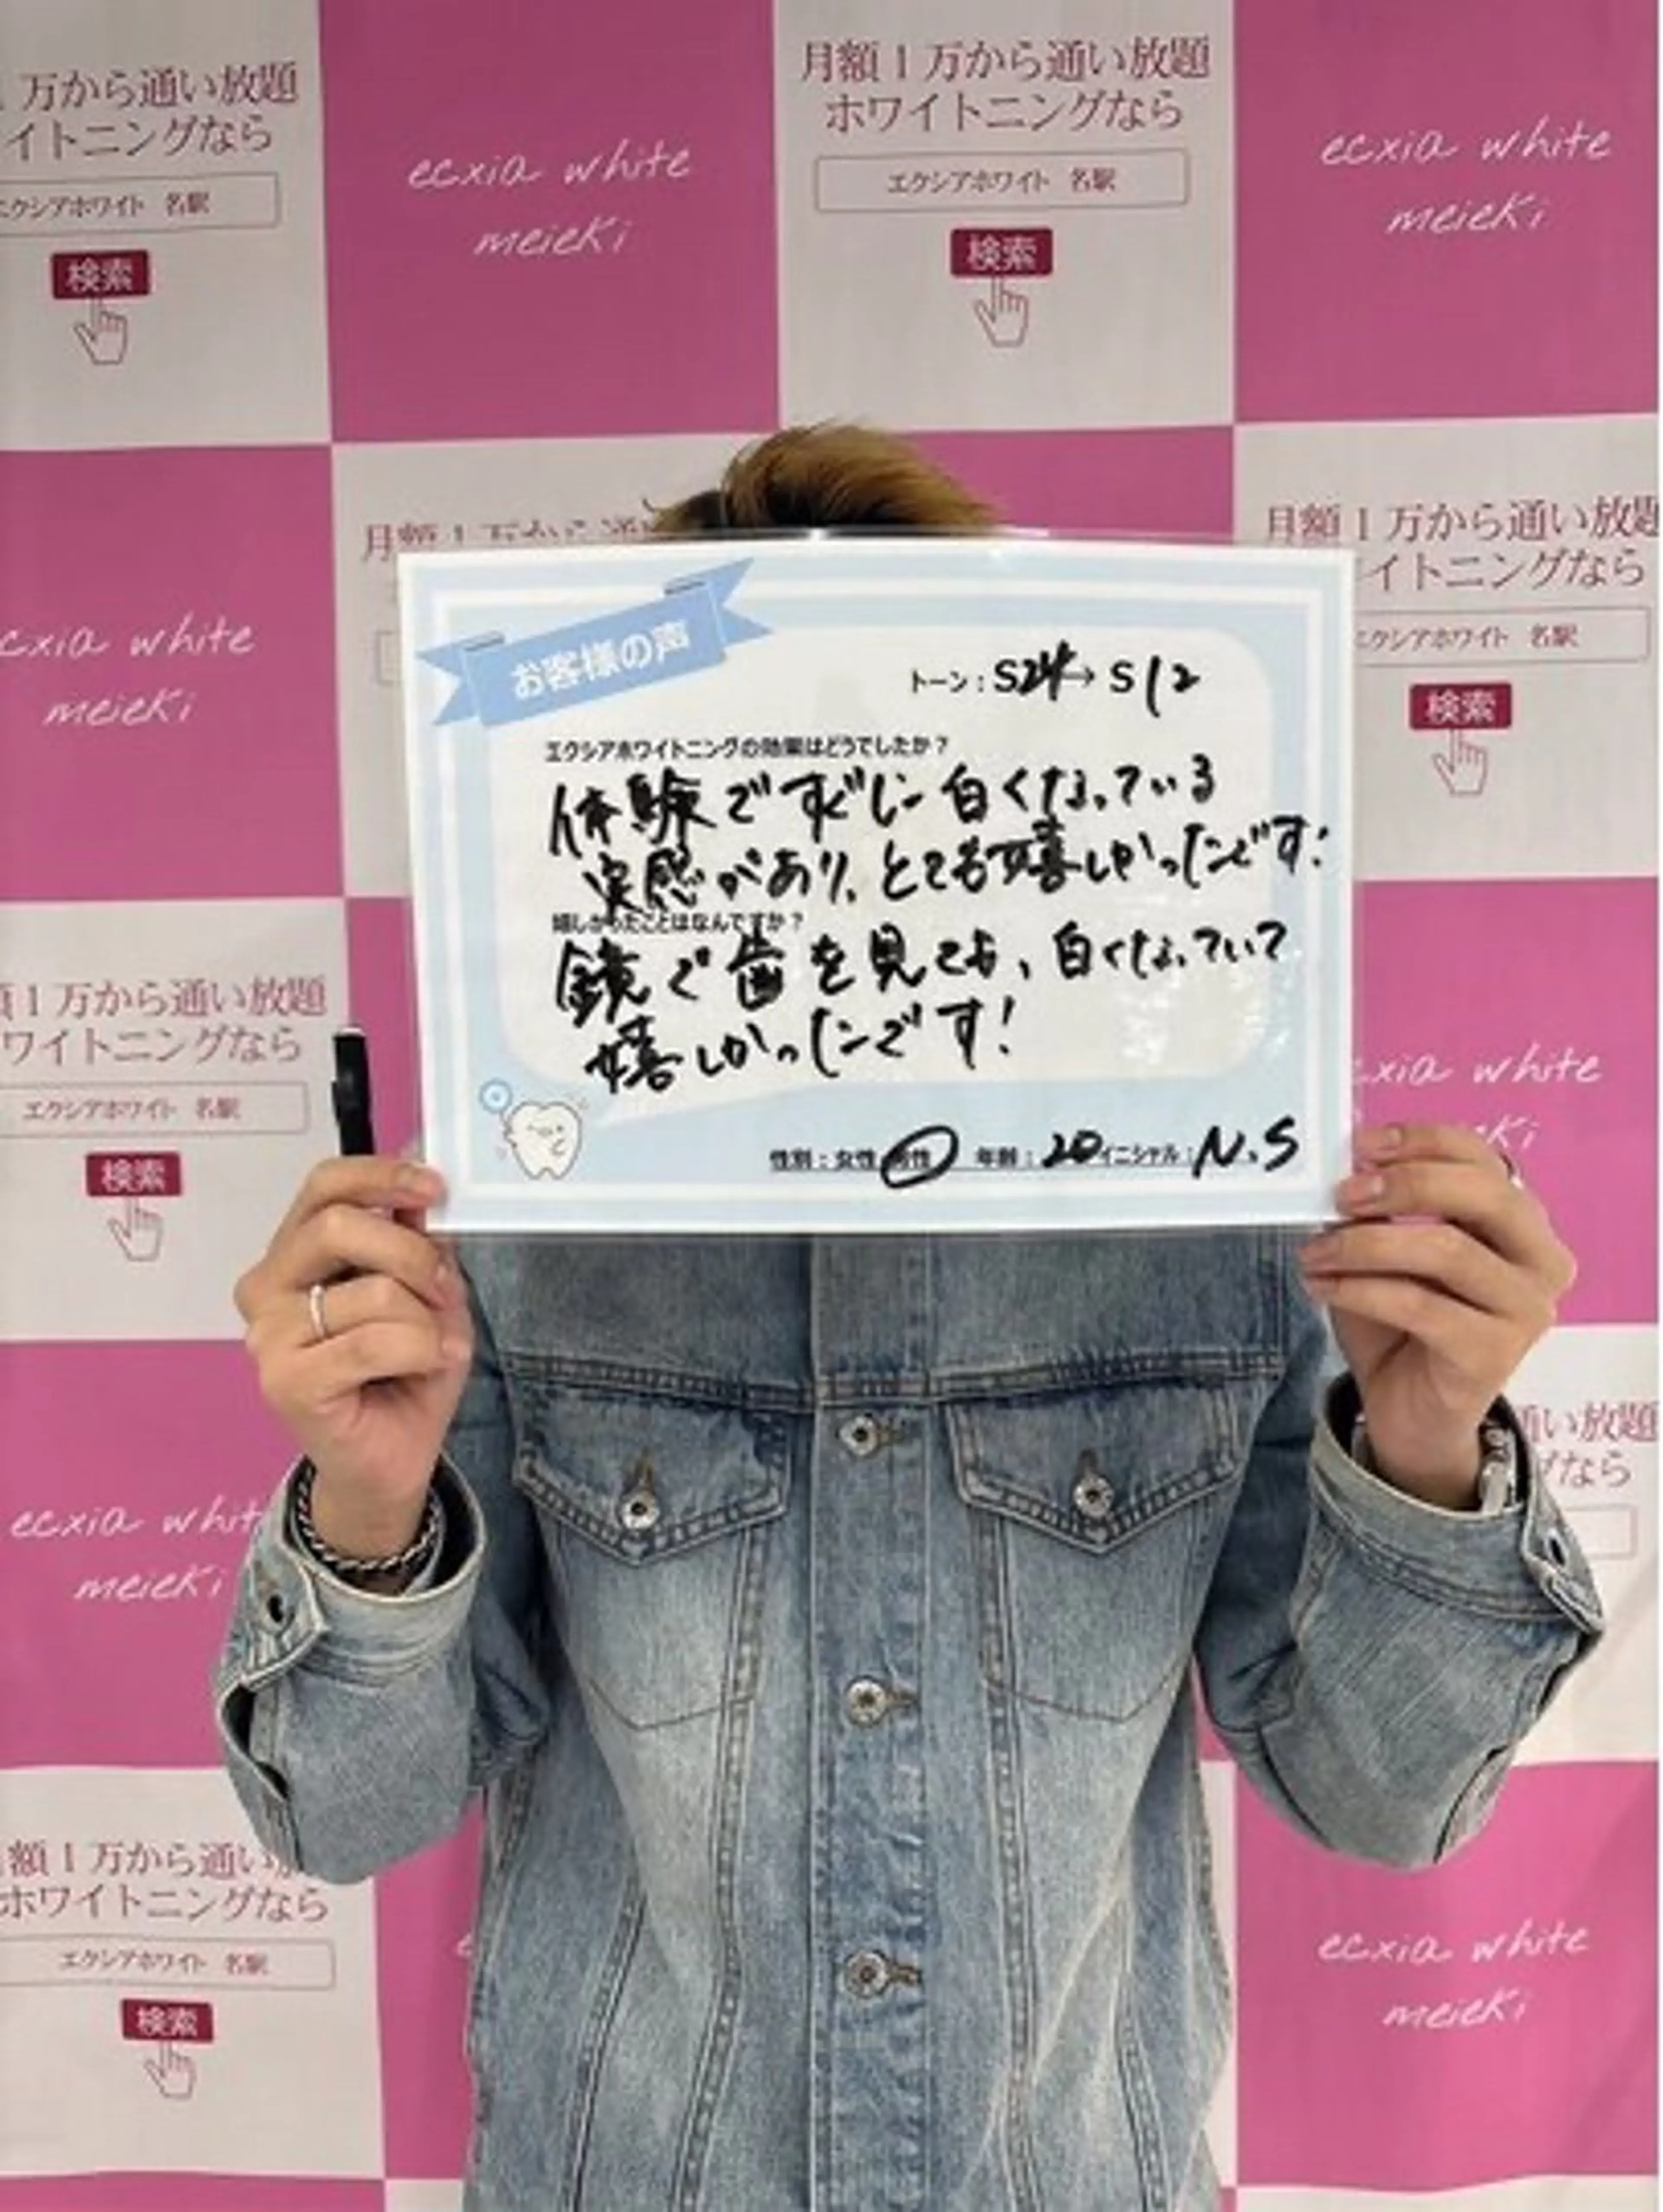 1万から通い放題
イトニングなら
エクシアホワイト 名駅
検索
ecxia white
meieki
月額1万から通い放題
ホワイトニングなら
エクシアホワイト 名駅
検索
ecxia white
meieki
ecxia white
meieki
月額1万から通
月額1万から通い放題
イトニングなら
エクシアホワイト 名駅
検索
お客様の声
トーン：S24→S12
エクシアホワイトニングの効果はどうでしたか？
体験ですぐに白くなっている
実感があり、とても嬉しかったです！
嬉しかったことはなんですか？
鏡で歯を見ても、白くなっていて
嬉しかったです！
性別：女性 男性 年齢：20 イニシャル：N.S
額1万から通い放題
ワイトニングなら
エクシアホワイト 名駅
検索
cxia white
ki
ecxia whit
meieki
通い放題
グなら
額1万から通い
ホワイトニングなら
エクシアホワイト 名駅
検索
ecxia white
meieki